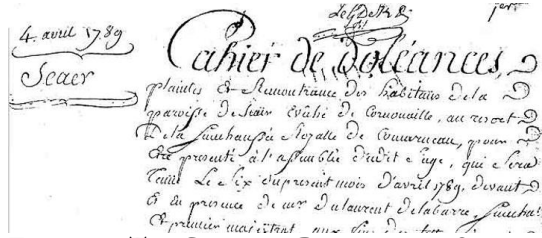 4. avril 1789
Scaer
Cahier de doléances,
plaintes et Remontrance des habitans de la
paroisse de Scair Evêché de Cornouaille, au resort
De la Senechaussée Royalle de Concarneau, pour
Etre presenté à l'assemblée dudit siege, qui Sera
Tenue Le Six du present mois D'avril 1789. devant
Et en presence de mr dulaurent delabarre, Senechal
Et premier magistrat aux